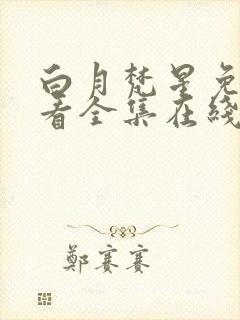 白月梵星免
看全集在线
鄭賽賽